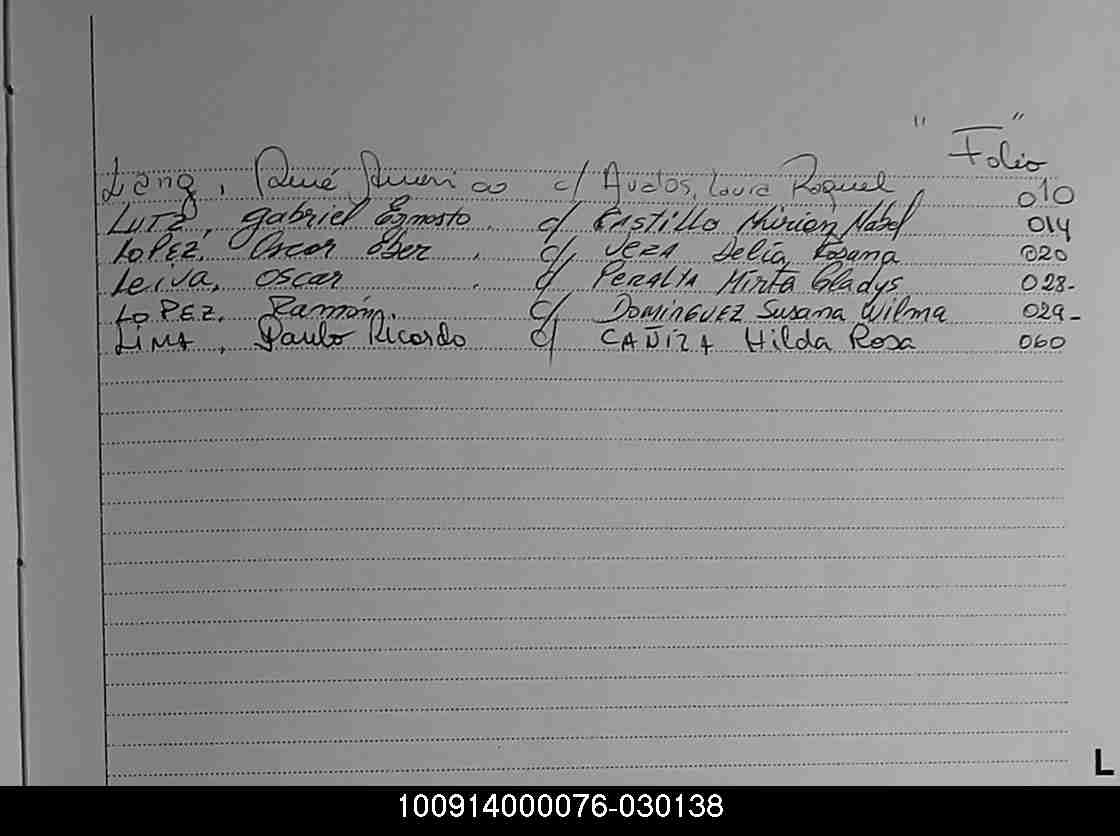 " Folio "
Lang, René Americo c/ Avalos, Laura Raquel 010
LUTZ, gabriel Ernesto c/ CASTILLO Mirien Mabel 014
LOPEZ, Oscar Eber c/ VERA Delia Rosana 020
Leiva, Oscar c/ PERALTA Mirta Gladys 028-
LOPEZ, Ramón. c/ DOMINGUEZ Susana Wilma 029-
LIMA, Paulo Ricardo c/ CAÑIZA Hilda Rosa 060
L
100914000076-030138